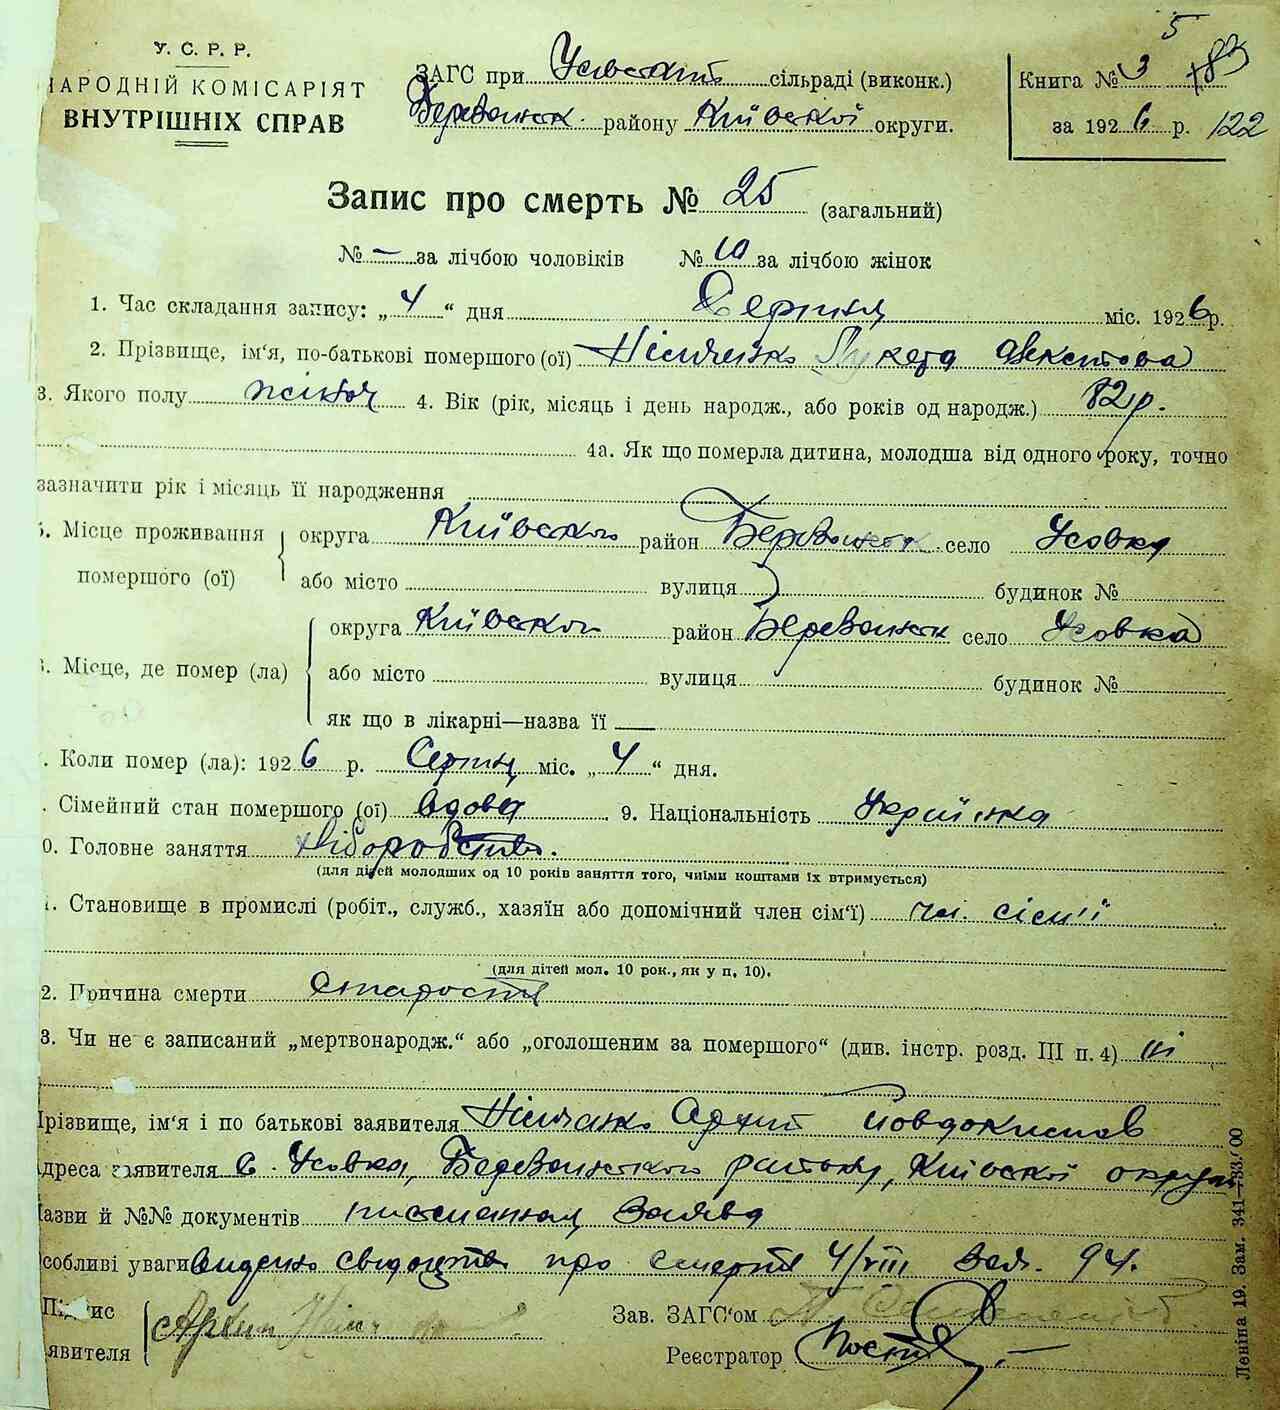 5
У. С. Р. Р.
НАРОДНІЙ КОМІСАРІЯТ
ВНУТРІШНІХ СПРАВ
ЗАГС при Усівській сільраді (виконк.)
Березанськ. району Київської округи.
Книга № 3 183
за 1926 р. 122
Запис про смерть № 25 (загальний)
№ – за лічбою чоловіків № 10 за лічбою жінок
1. Час складання запису: „4“ дня Серпня міс. 1926 р.
2. Прізвище, ім‘я, по-батькові помершого (ої)
3. Якого полу жіноч 4. Вік (рік, місяць і день народж., або років од народж.) 82 р.
4а. Як що померла дитина, молодша від одного року, точно
зазначити рік і місяць її народження
5. Місце проживання помершого (ої) округа Київсько район Березанськ село Усовка
або місто вулиця будинок №
6. Місце, де помер (ла) округа Київсько район Березанськ село Усовка
або місто вулиця будинок №
як що в лікарні—назва її
. Коли помер (ла): 1926 р. Серпня міс. „4“ дня.
. Сімейний стан помершого (ої) вдова 9. Національність Українка
0. Головне заняття хліборобство.
(для дітей молодших од 10 років заняття того, чиїми коштами їх втримується)
1. Становище в промислі (робіт., служб., хазяїн або допомічний член сім‘ї) чл. сієм'ї
(для дітей мол. 10 рок., як у п. 10).
2. Причина смерти старость
3. Чи не є записаний „мертвонародж.“ або „оголошеним за помершого“ (див. інстр. розд. III п. 4) ні
Прізвище, ім‘я і по батькові заявителя Архип Йовдокимов
Адреса заявителя с. Усовка, Березанського району, Київскої округи
Назви й №№ документів письманная заява
Особливі уваги видено свідоцтво про смерть 4/VIII зая. 94.
Підпис
заявителя Архип
Зав. ЗАГС‘ом
Реєстратор
Леніна 19. Зам. 341—133.000